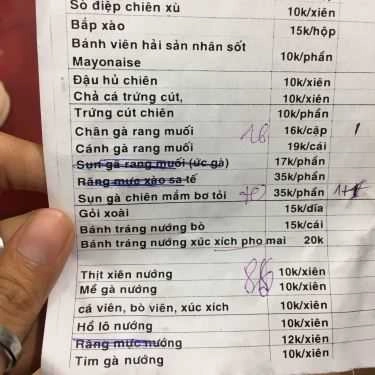 Sò điệp chiên xù 10k/xiên
Bắp xào 15k/hộp
Bánh viên hải sản nhân sốt
Mayonaise 10k/phần
Đậu hủ chiên 10k/xiên
Chả cá trứng cút, 10k/xiên
Trứng cút chiên 10k/phần
Chân gà rang muối 16 16k/cặp 1
Cánh gà rang muối 19k/cái
Sụn gà rang muối (ức gà) 17k/phần
Răng mực xào sa tế 35k/phần
Sụn gà chiên mắm bơ tỏi 70 35k/phần 1+1
Gỏi xoài 15k/dĩa
Bánh tráng nướng bò 15k/cái
Bánh tráng nướng xúc xích pho mai 20k
Thịt xiên nướng 10k/xiên
Mề gà nướng 86 10k/xiên
cá viên, bò viên, xúc xích 10k/xiên
Hồ lô nướng 10k/xiên
Răng mực nướng 12k/xiên
Tim gà nướng 10k/xiên